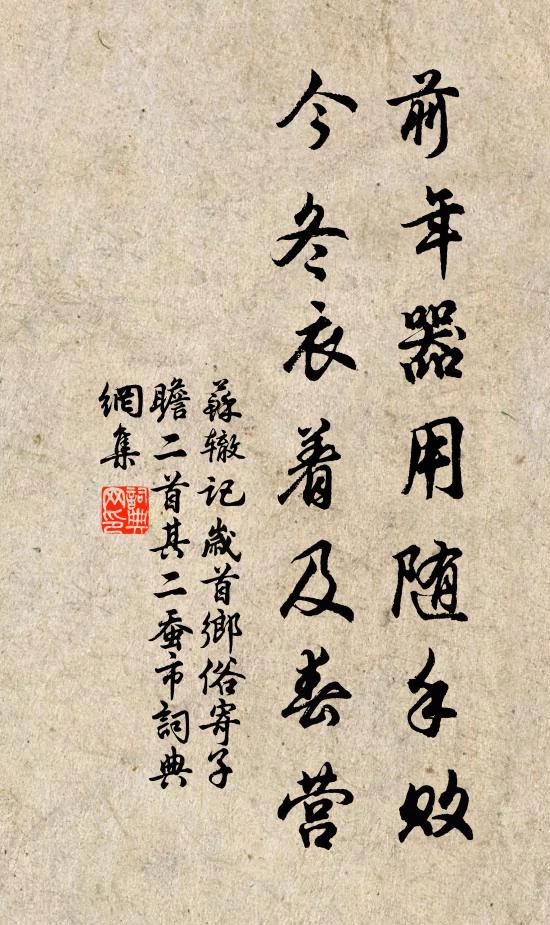 前年器用随手败
今冬衣着及春营
蘇辙记歲首鄉俗寄子
瞻二首其二蚕市詞典
網集
詞典网印